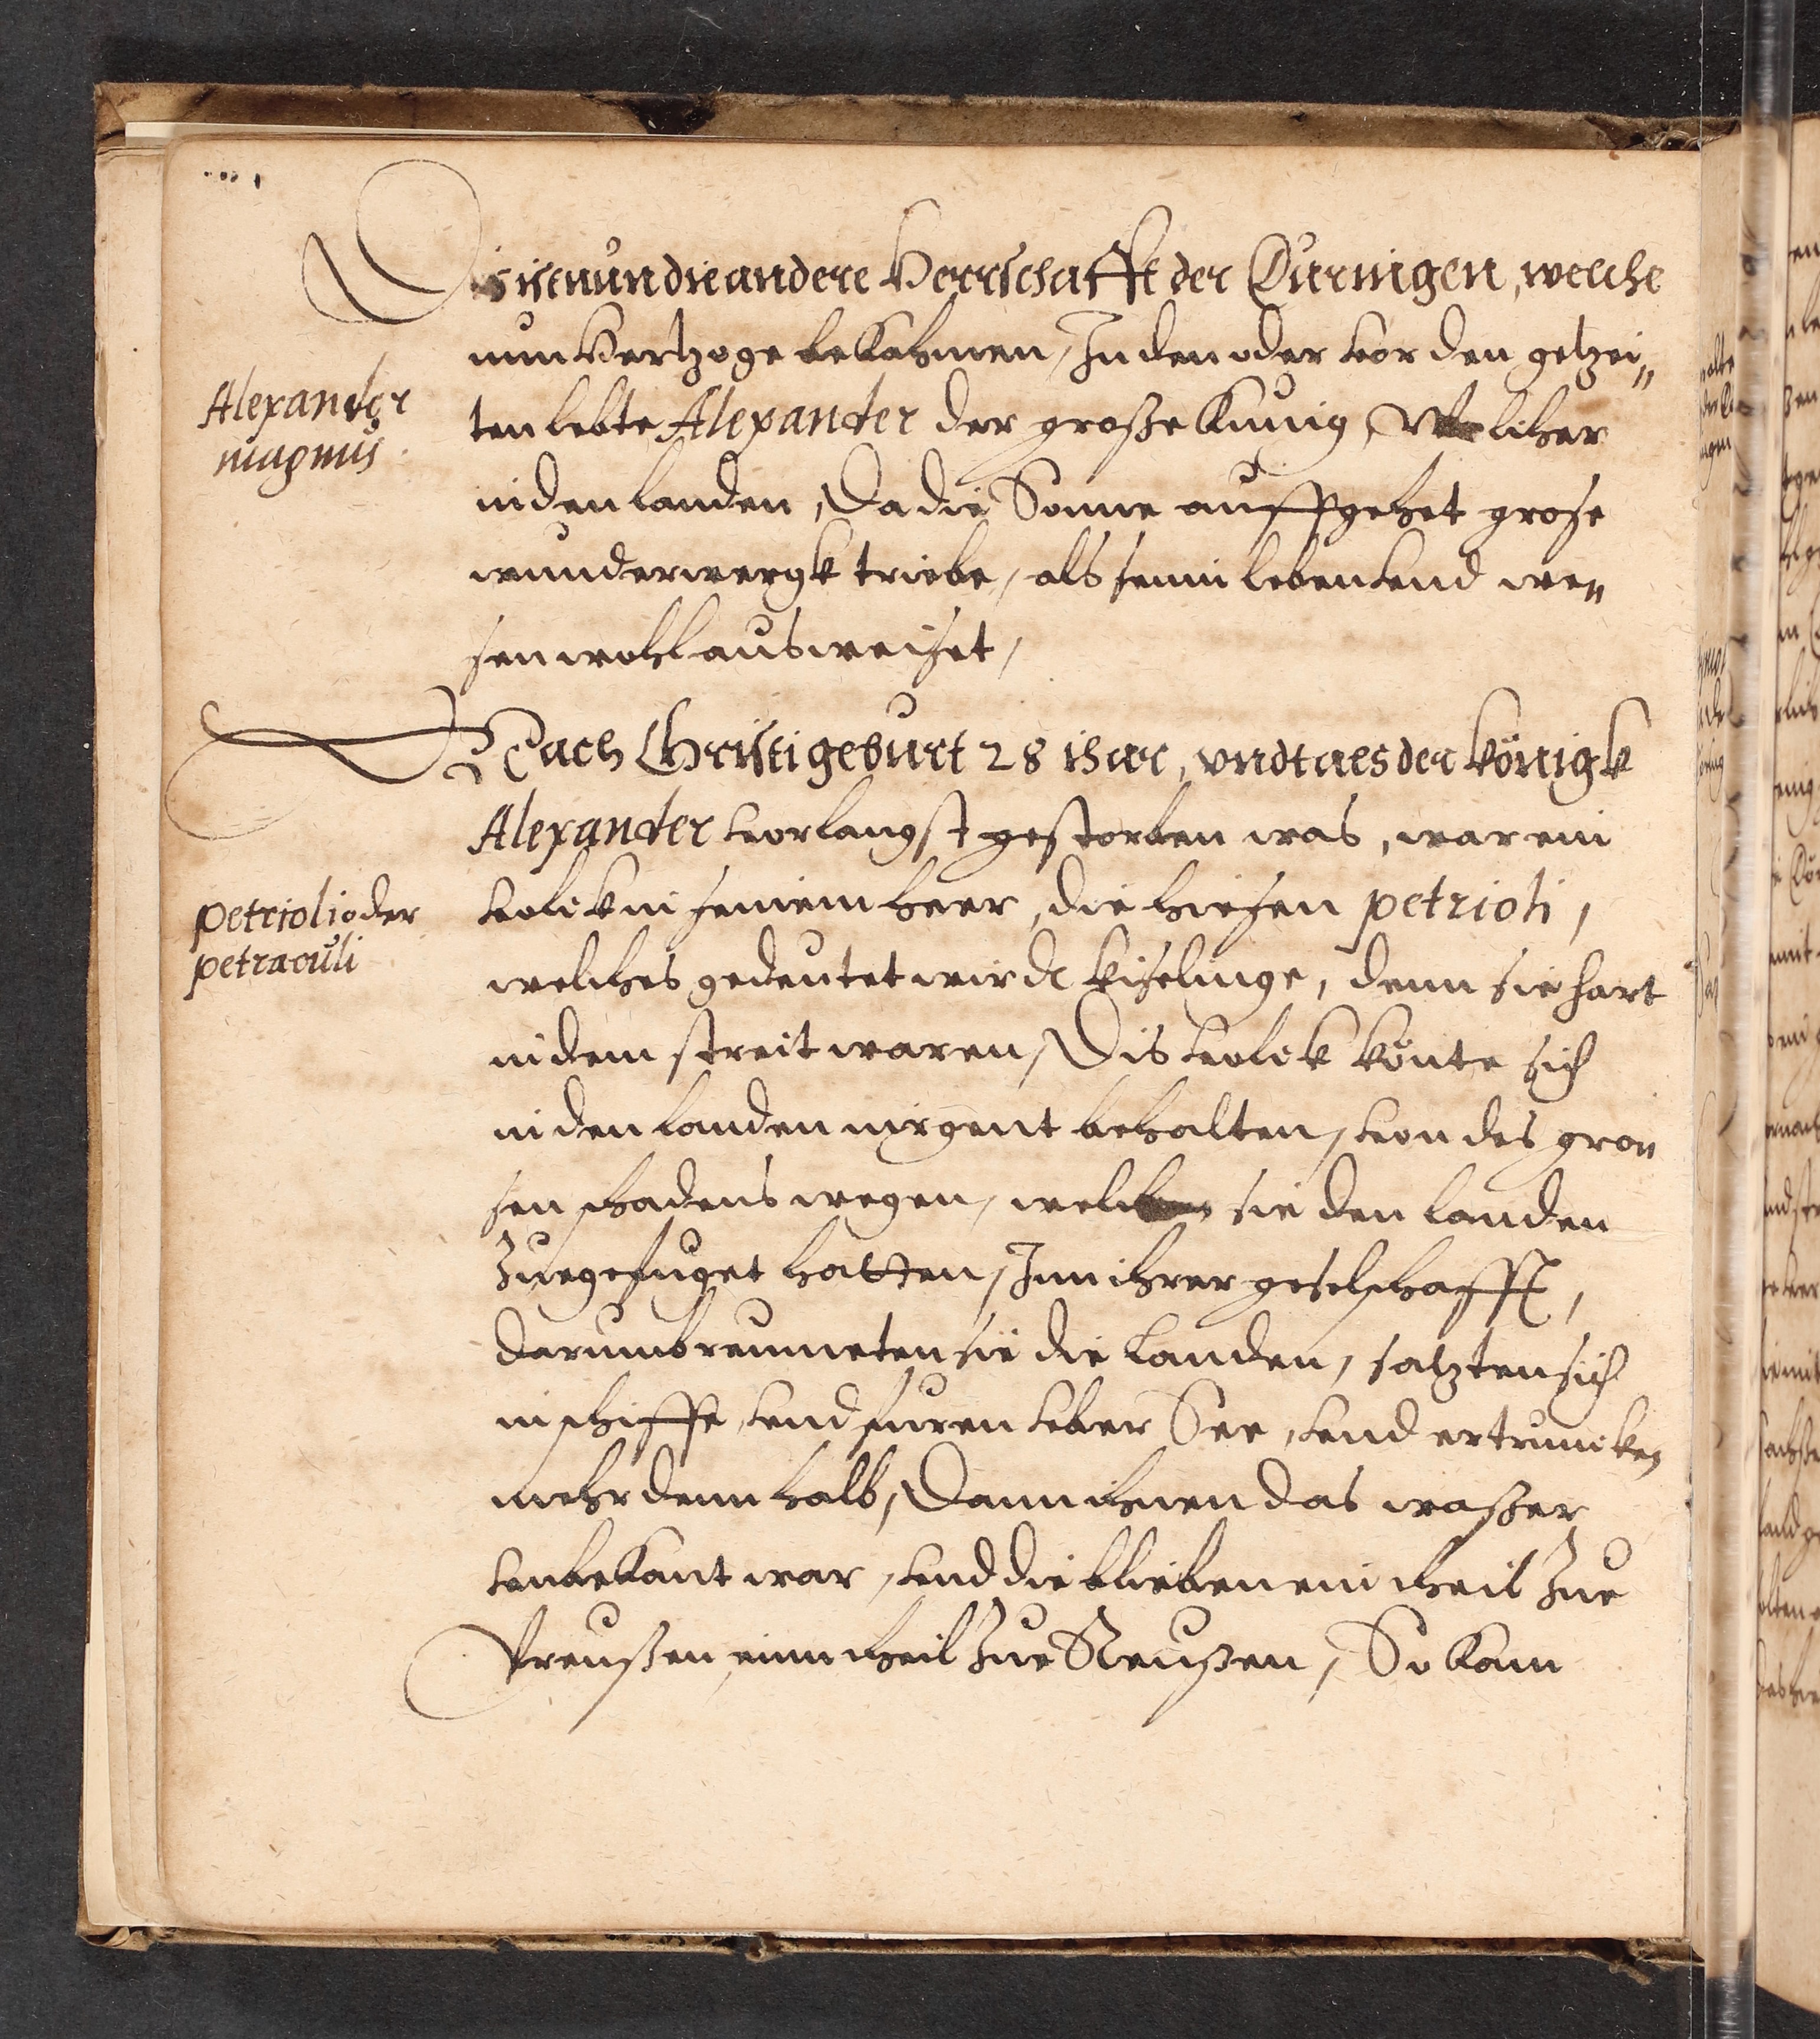 Dis ist nun die andere Herrschafft der Duringen, welche
nun Hertzoge bekahmen, In den oder vor den getzei„
Alexander
magnus
ten lebte Alexander der große Kunig, Welicher
in den landen, Da die Sonne auffgehet grose
wunderwergk triebe, als sein leben vnd we„
sen wohl ausweiset,
Nach Christi geburt 28 ihar, vndt als der königk
Alexander vorlangst gestorben was, war ein
petrioli oder
petraculi
volck in seinem heer, die hiesen petrioli,
welches gedeutet wird kiselinge, denn sie hart
in dem streit waren, Dis volck könte sich
in den landen nirgent behalten, von des gro„
sen schadens wegen, welchen sie den landen
Zuegefuget hatten, Inn ihrer geselschafft,
darumb reumeten sie die Landen, satzten sich
in schiffe, vnd furen vber See, vnd ertruncken
mehr denn halb, Dann ihnen das waßer
vnbekant war, vnd die blieben ein theil Zue
Preußen, einn theil Zue Reußen, So kam